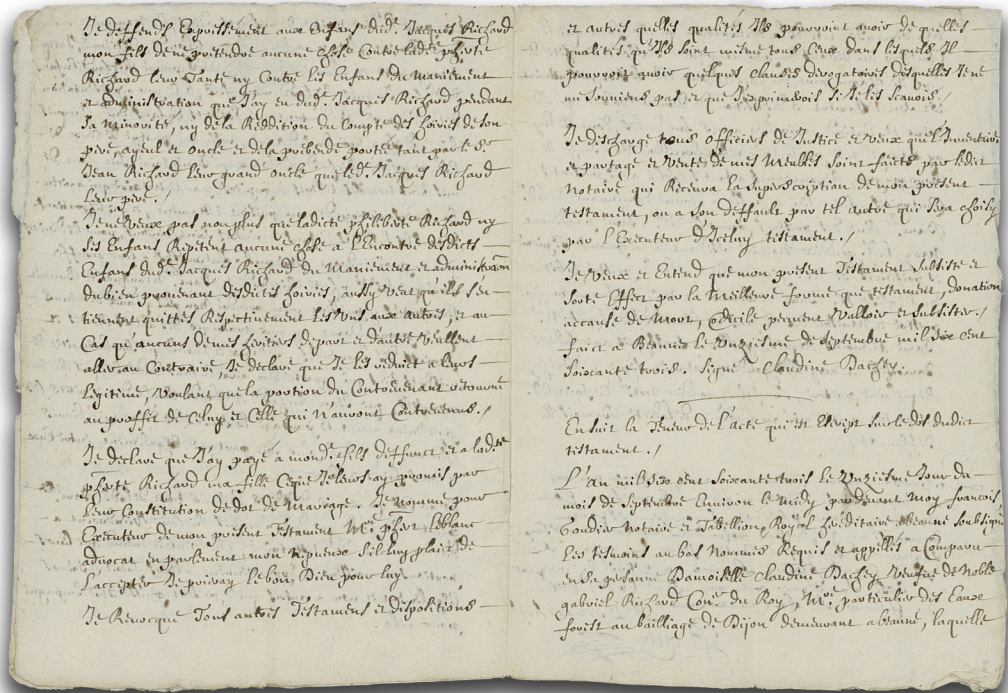 Je deffends Expressément aux Enfans dud. Jacques Richard
mon fils de ne pretendre aucune chose Contre lade. phzerte
Richard leur Tante ny Contre les Enfans du Maniement
et administration que J'ay eu dud. Jacques Richard pendant
sa Minorité, ny de la Reddition du Compte des hoiries de son
pere, ayeul et Oncle et de la prebende portée tant par le Sr
Jean Richard leur grand Oncle que led. Jacques Richard
leur pere. /
Je ne Veux pas non plus que ladicte philiberte Richard ny
ses Enfans Repetent aucune chose a l'Encontre desdicts
Enfans dud. Jacques Richard du Maniement et administraon
du bien prouenant desdictes hoiries, aussy Veut qu'ils s'en
tiennent quittes Respectiuement les Uns aux autres, et au
Cas qu'aucuns de mes heritiers de part et d'autre Veullent
aller au Contraire, Je declare que Je les reduict a leurs
legitime, Voulant que la portion du Contreuenant retourne
au proffit de Celuy et Celle qui N'auront Contreuenus. /
Je declare que J'ay payé a mond. fils deffunct et a lad.te
phzerte Richard ma fille Ce que Je leurs ay promis par
leur Constitution de dot de Mariage. Je nomme pour
Executeur de mon present Testament Mre phzert leblanc
aduocat en parlement mon Nepueux s'il luy plait de
l'accepter Je priray le bon Dieu pour luy.
Je Reuocque Tous autres Testamens et dispositions
et autres quelles qualités Ils pourroint auoir de quelles
qualités qu'Ils soint mesme tous Ceux dans lesquels Il
pourroit auoir quelques clauses derogatoires desquelles Je ne
me souuiens pas et qui J'exprimerois si Je les scauois. /
Je descharge tous Officiers de Justice et Veux que l'Inuentaire
et partage et Vente de mes Meubles soint faicts par ledit
Notaire qui Receura la superscription de mon present
testament, ou a son deffault par tel autre qui sera choisy
par l'Executeur d'Iceluy testament. /
Je Veux et Entend que mon present Testament subsiste et
sorte Effect par la Meilleure forme que testament, donation
a cause de Mort, Codicile peuuent Valloir et subsister. /
faict a Beaune le Unziesme de septembre mil six cent
soixante trois. Signé Claudine Bachey.
Ensuit la Teneur de l'acte qui est Escript sur le dos dudict
testament. /
L'an mil six cent soixante trois le Unziesme Jour du
mois de septembre Enuiron le Midy pardeuant Moy francois
Notaire et Tabellion Royal hereditaire a Beaune soubsigné
les tesmoins au bas Nommés Requis et appellés a Comparu
en sa personne Damoiselle Claudine Bachey Veufue de Noble
gabriel Richard Coner. du Roy, Mre. particulier des Eaux
forest au bailliage de Dijon demeurant a beaune, laquelle